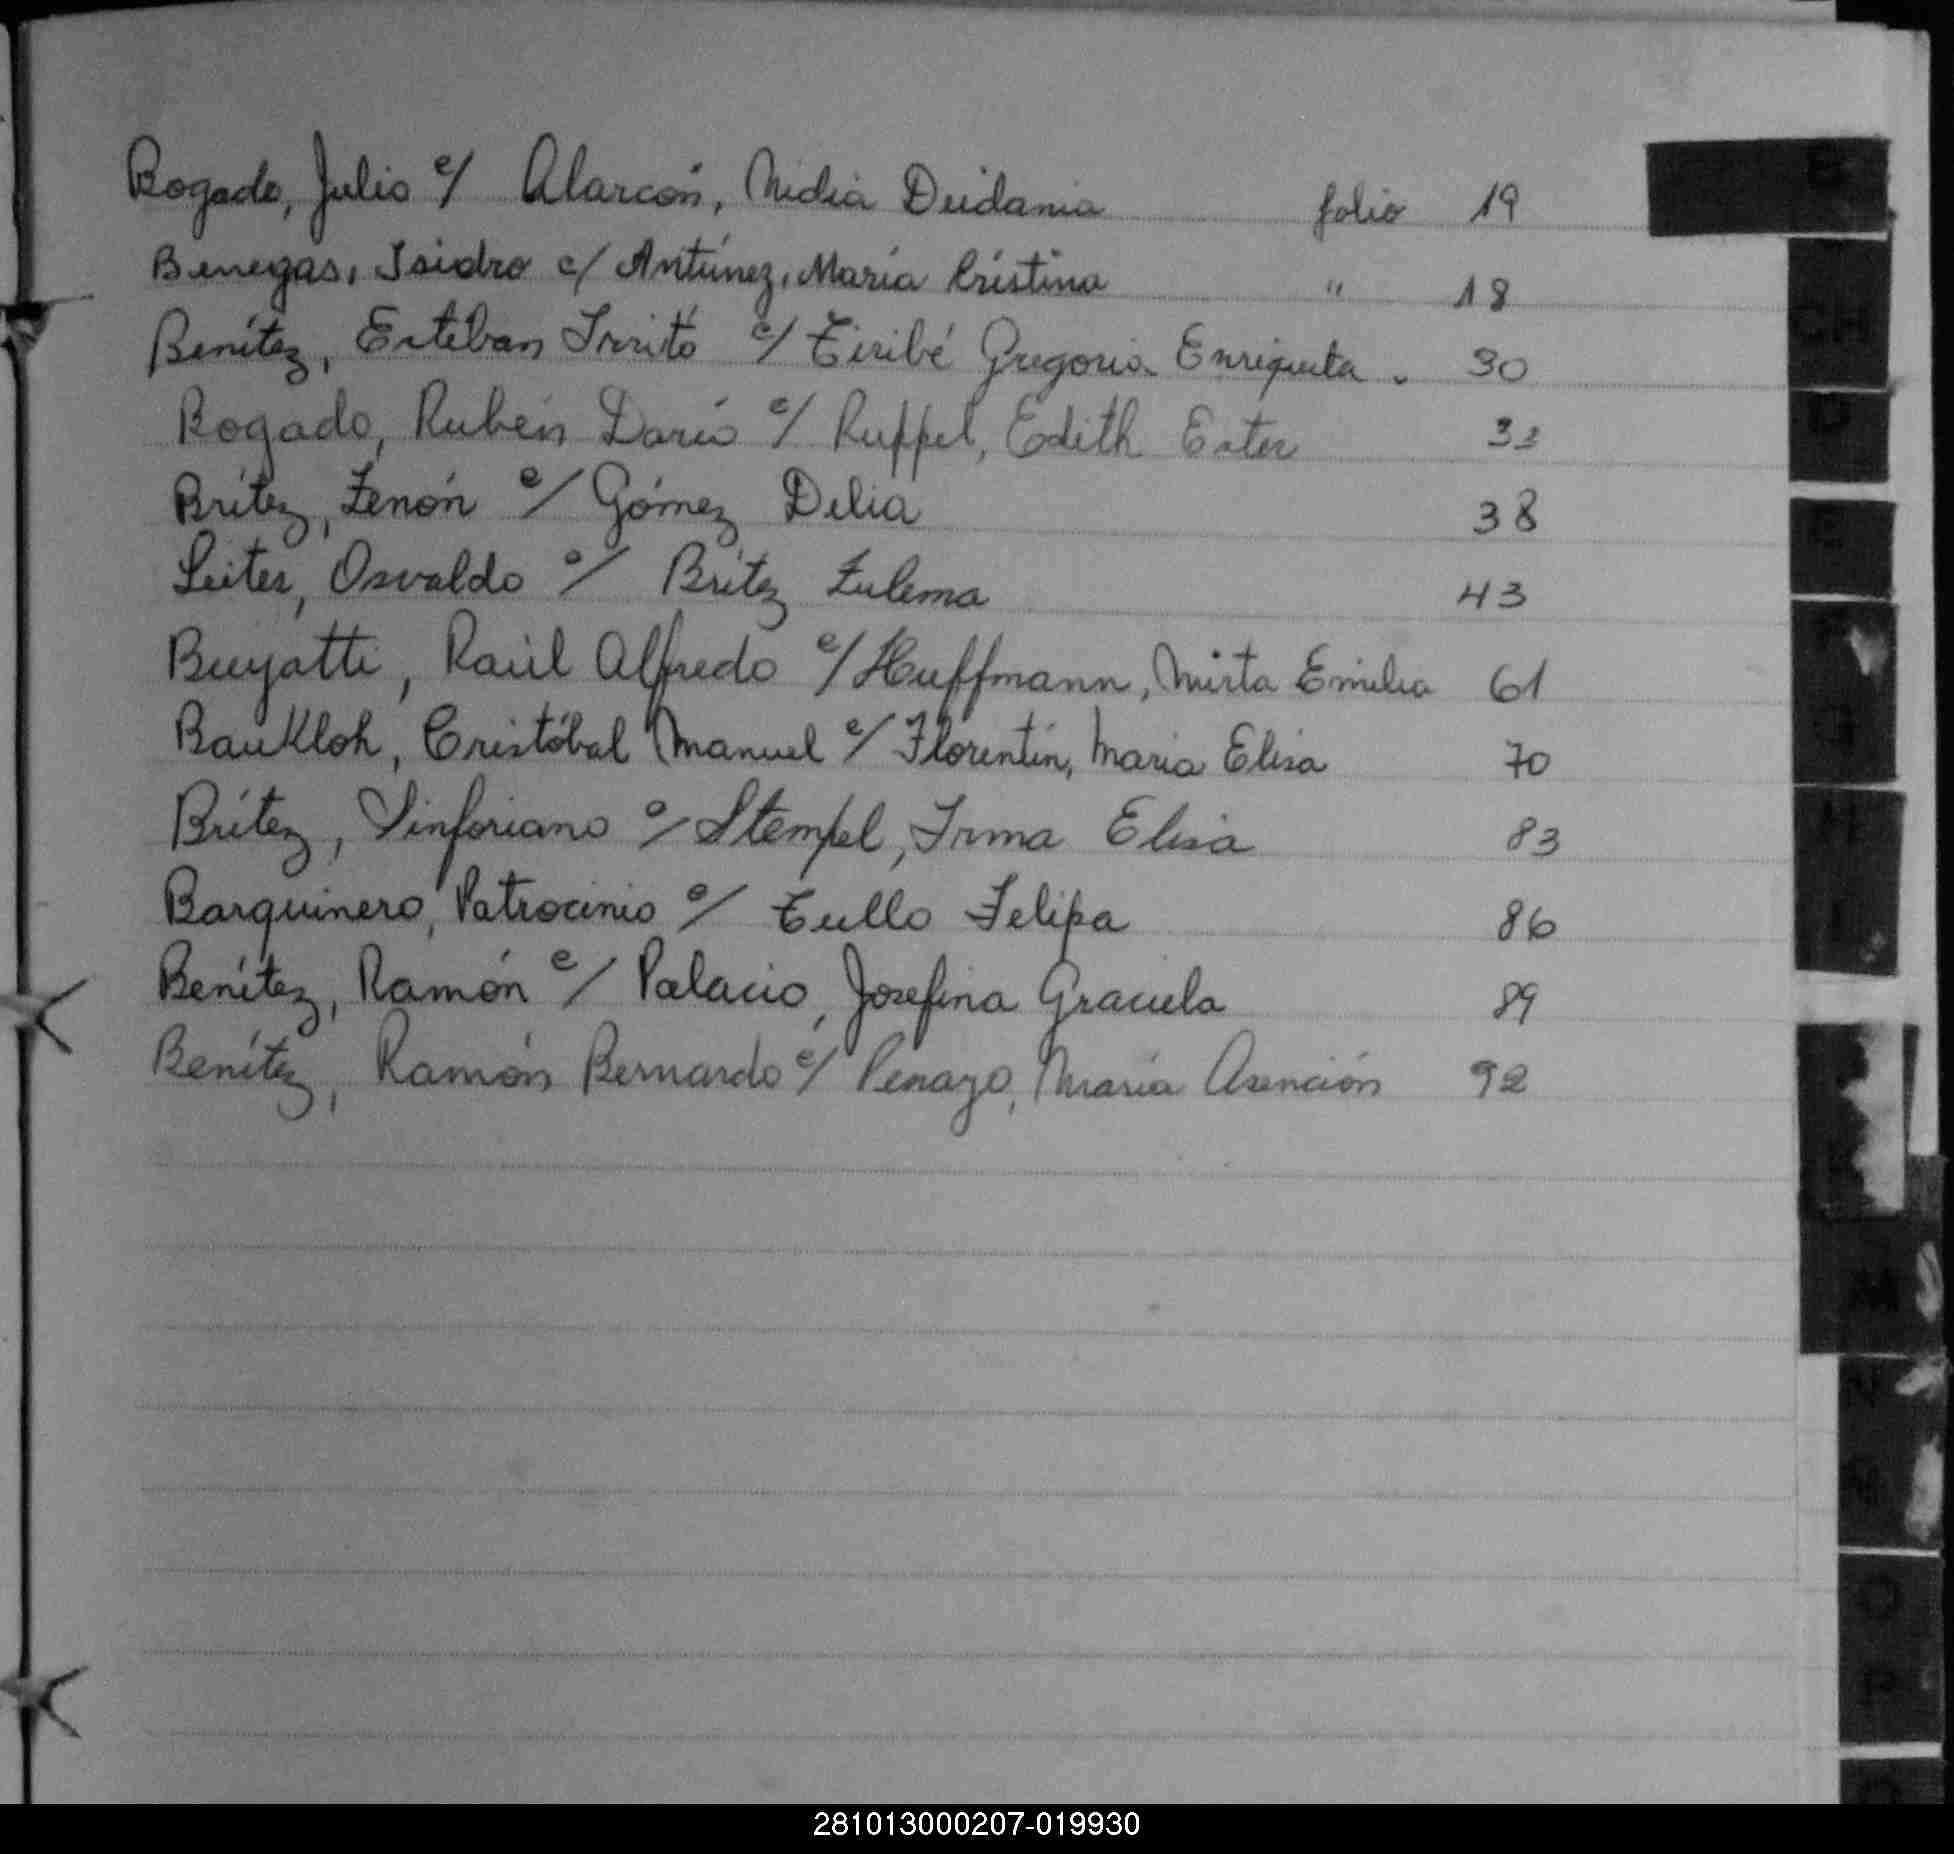 Bogado, Julio c/ Alarcón, Nidia Deidania folio 19
Benegas, Isidro c/ Antúnez, María Cristina " 18
Benítez, Esteban c/ Tiribé Gregoria Enriqueta. 30
Bogado, Rubén Darío c/ Ruppel, Edith Ester
Brítez, Zenón c/ Gómez Delia 38
Leites, Osvaldo c/ Brítez Zulema 43
Buyatti, Raúl Alfredo c/ Huffmann, Mirta Emilia 61
BauKloh, Cristóbal Manuel c/ Florentín, María Elisa 70
Brítez, Sinforiano c/ Stempel, Irma Elisa 83
Barquinero, Patrocinio c/ Tullo Felipa 86
Benítez, Ramón c/ Palacio, Josefina Graciela 89
Benítez, Ramón Bernardo c/ Penayo, María Asención 92
B
CH
D
E
F
G
H
I
M
N
O
P
281013000207-019930